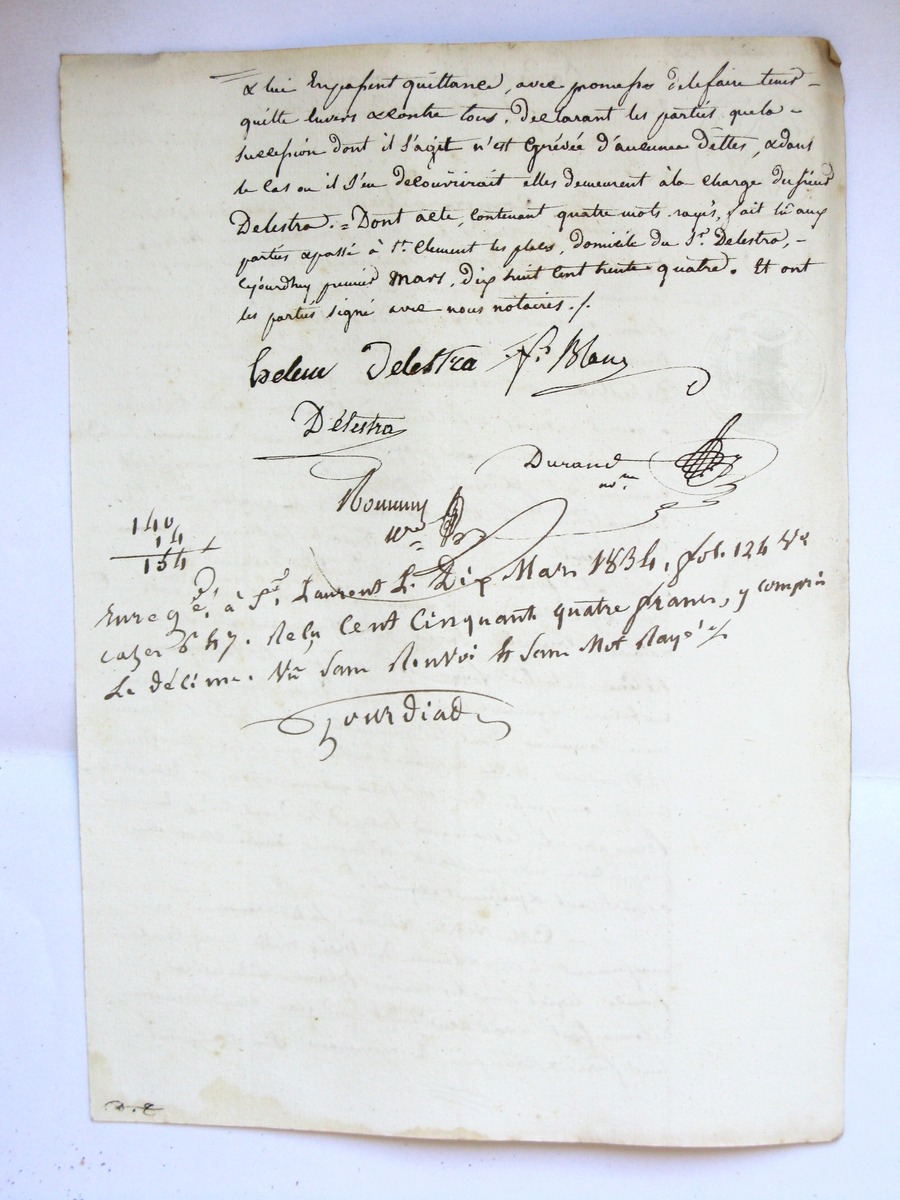 & lui En passent quittance, avec promesse de le faire tenir -
quitte Envers & contre tous, Déclarant les parties que la -
succession dont il s'agit n'est Grévée d'aucunes Dettes, & dans
le Cas ou il s'en découvrirait elles demeurent à la charge du sieur
Delestra. = Dont acte, contenant quatre mots rayés, fait lû aux
parties & passé à St. Clement les places, domicile du Sr. Delestra, -
Cejourdhuy premier Mars, dix huit Cent trente quatre. Et ont
les parties signé avec nous notaires ./.
helene Delestra fs. Blanc
Délestra
Durand
nore
nre
140
14
154
Enregé. à St. Laurent Le Dix Mars 1834, fol. 124 Vo
cases 6 & 7. Reçu Cent Cinquante quatre francs, y compris
Le décime. Vû Sans Renvoi & Sans Mot Rayé ./.